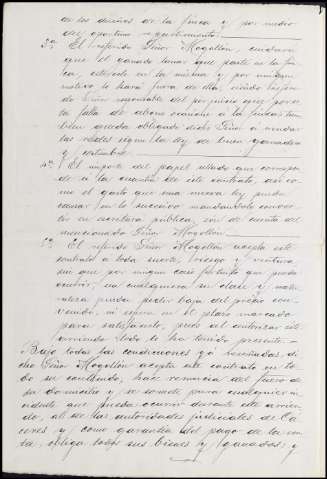 de los dueños de la finca y por medio
del oportuno requerimiento
3ª El referido Señor Mogollón, cuidará
que el ganado lanar que paste en la fin-
ca, estercole en la misma y por ningún
motivo lo hará fuera de ella, siendo dicho
Señor responsable del perjuicio que por
la falta de abono ocasione a la finca; tam-
bien queda obligado dicho Señor a mudar
las redes según la ley de buen ganadero
y costumbre
4ª El importe del papel sellado que correspon-
de a la cuantía de este contrato, así co-
mo el gasto que una nueva ley pueda
causar en lo sucesivo mandandolo conver-
tir en escritura pública, son de cuenta del
mencionado Señor Mogollón
5ª El referido Señor Mogollón acepta este
contrato a toda suerte, riesgo y ventura
sin que por ningun caso fortuito que pueda
ocurrir, sea cualquiera su clase y natu-
raleza pueda pedir baja del precio con-
venido, ni espera en el plazo marcado
para satisfacerlo, pues al autorizar este
arriendo todo lo ha tenido presente.
Bajo todas las condiciones ya reseñadas, di-
cho Señor Mogollón acepta este contrato en to-
do su contenido, hace renuncia del fuero de
su domicilio y se somete para cualquier in-
cidente que pueda ocurrir durante este arrien-
do, al de las autoridades judiciales de Cá-
ceres y como garantía del pago de la ren-
ta, obliga todos sus bienes y ganados; y